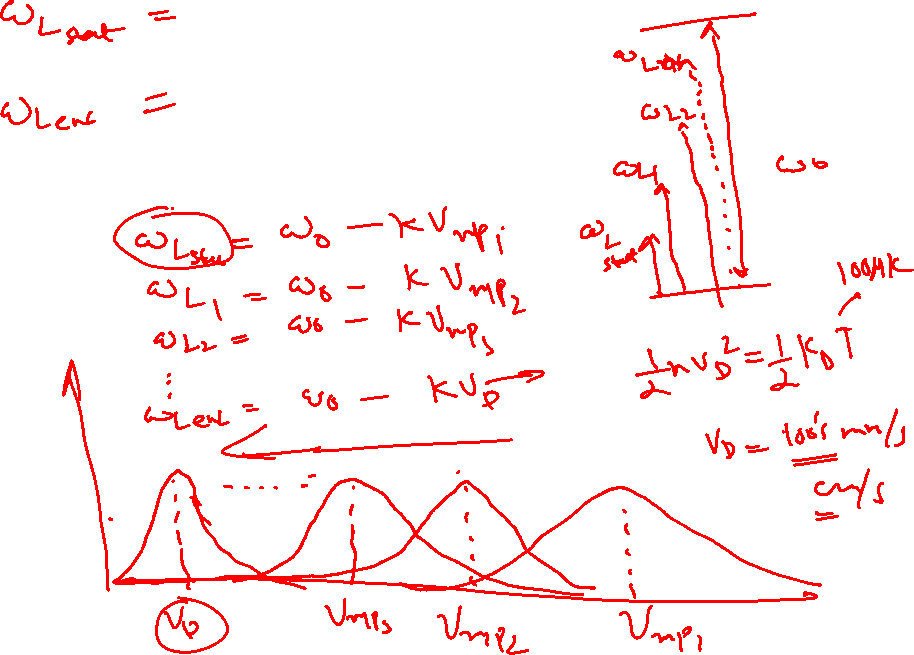 ω_L start =
ω_L end =
ω_L start = ω₀ − K V_mp₁
ω_L₁ = ω₀ − K V_mp₂
ω_L₂ = ω₀ − K V_mp₃
⋮
ω_L end = ω₀ − K V_D
ω_L end
ω_L2
ω_L1
ω_L start
ω₀
100μK
½ m V_D² = ½ K_B T
V_D = 100's mm/s
cm/s
V_D V_mp₃ V_mp₂ V_mp₁